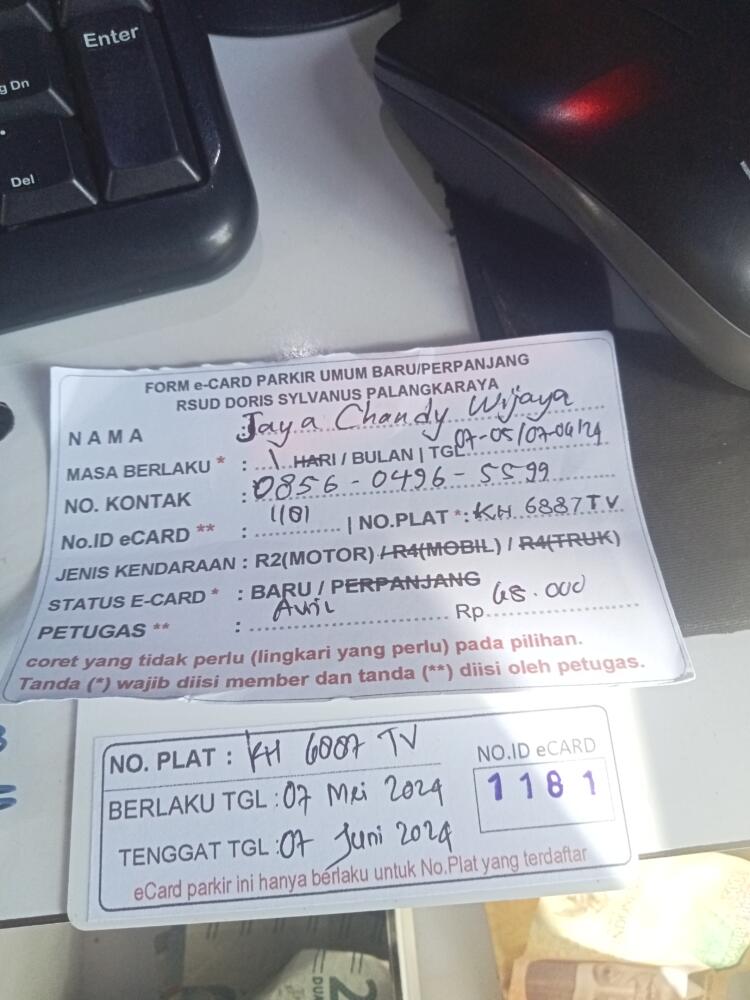 Enter
g Dn
Del
FORM e-CARD PARKIR UMUM BARU/PERPANJANG
RSUD DORIS SYLVANUS PALANGKARAYA
NAMA : Jaya Chandy Wijaya
MASA BERLAKU * : 1 HARI / BULAN | TGL 07-05/07-06/24
NO. KONTAK : 0856-0496-5599
No.ID eCARD ** : 1181 | NO.PLAT *: KH 6887 TV
JENIS KENDARAAN : R2(MOTOR) / R4(MOBIL) / R4(TRUK)
STATUS E-CARD * : BARU / PERPANJANG
PETUGAS ** : Rp 68.000
coret yang tidak perlu (lingkari yang perlu) pada pilihan.
Tanda (*) wajib diisi member dan tanda (**) diisi oleh petugas.
NO. PLAT : KH 6887 TV
NO.ID eCARD
BERLAKU TGL : 07 Mei 2024
1181
TENGGAT TGL : 07 Juni 2024
eCard parkir ini hanya berlaku untuk No.Plat yang terdaftar